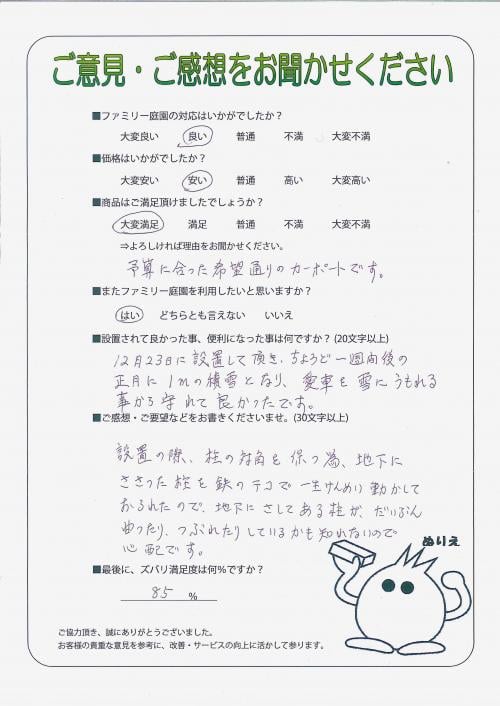 ご意見・ご感想をお聞かせください
■ファミリー庭園の対応はいかがでしたか？
大変良い 良い 普通 不満 大変不満
■価格はいかがでしたか？
大変安い 安い 普通 高い 大変高い
■商品はご満足頂けましたでしょうか？
大変満足 満足 普通 不満 大変不満
⇒よろしければ理由をお聞かせください。
予算に合った希望通りのカーポートです。
■またファミリー庭園を利用したいと思いますか？
はい どちらとも言えない いいえ
■設置されて良かった事、便利になった事は何ですか？(20文字以上)
12月23日に設置して頂き、ちょうど一週間後の
正月に1mの積雪となり、愛車を雪にうもれる
事から守れて良かったです。
■ご感想・ご要望などをお書きくださいませ。(30文字以上)
設置の際、柱の対角を保つ為、地下に
ささった柱を鉄のテコで一生けんめい動かして
おられたので、地下にさしてある柱が、だいぶん
曲ったり、つぶれたりしているかも知れないので
心配です。
ぬりえ
■最後に、ズバリ満足度は何％ですか？
85 ％
ご協力頂き、誠にありがとうございました。
お客様の貴重な意見を参考に、改善・サービスの向上に活かして参ります。